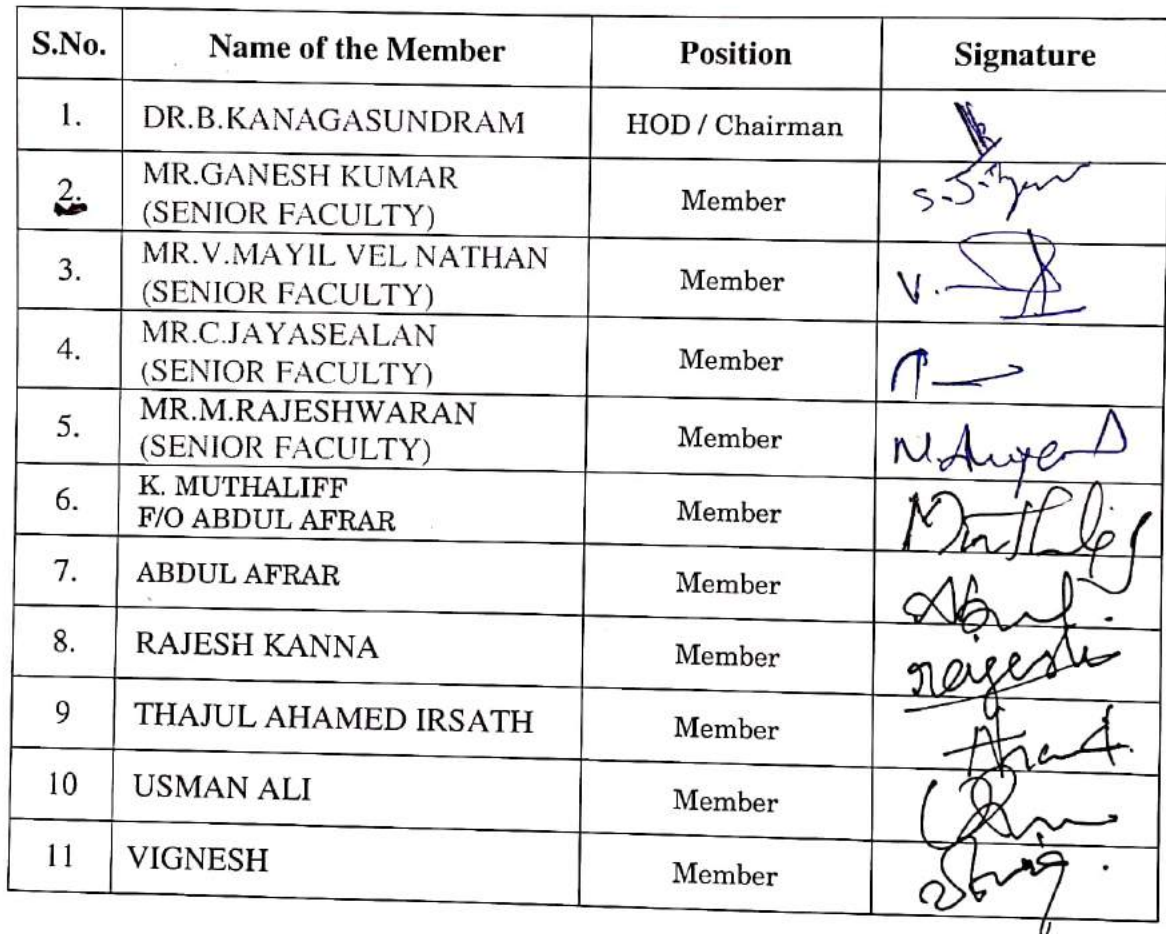 S.No. Name of the Member Position Signature
1. DR.B.KANAGASUNDRAM HOD / Chairman
2. MR.GANESH KUMAR
(SENIOR FACULTY) Member
3. MR.V.MAYIL VEL NATHAN
(SENIOR FACULTY) Member V.
4. MR.C.JAYASEALAN
(SENIOR FACULTY) Member
5. MR.M.RAJESHWARAN
(SENIOR FACULTY) Member
6. K. MUTHALIFF
F/O ABDUL AFRAR Member
7. ABDUL AFRAR Member
8. RAJESH KANNA Member rajesh
9 THAJUL AHAMED IRSATH Member
10 USMAN ALI Member
11 VIGNESH Member